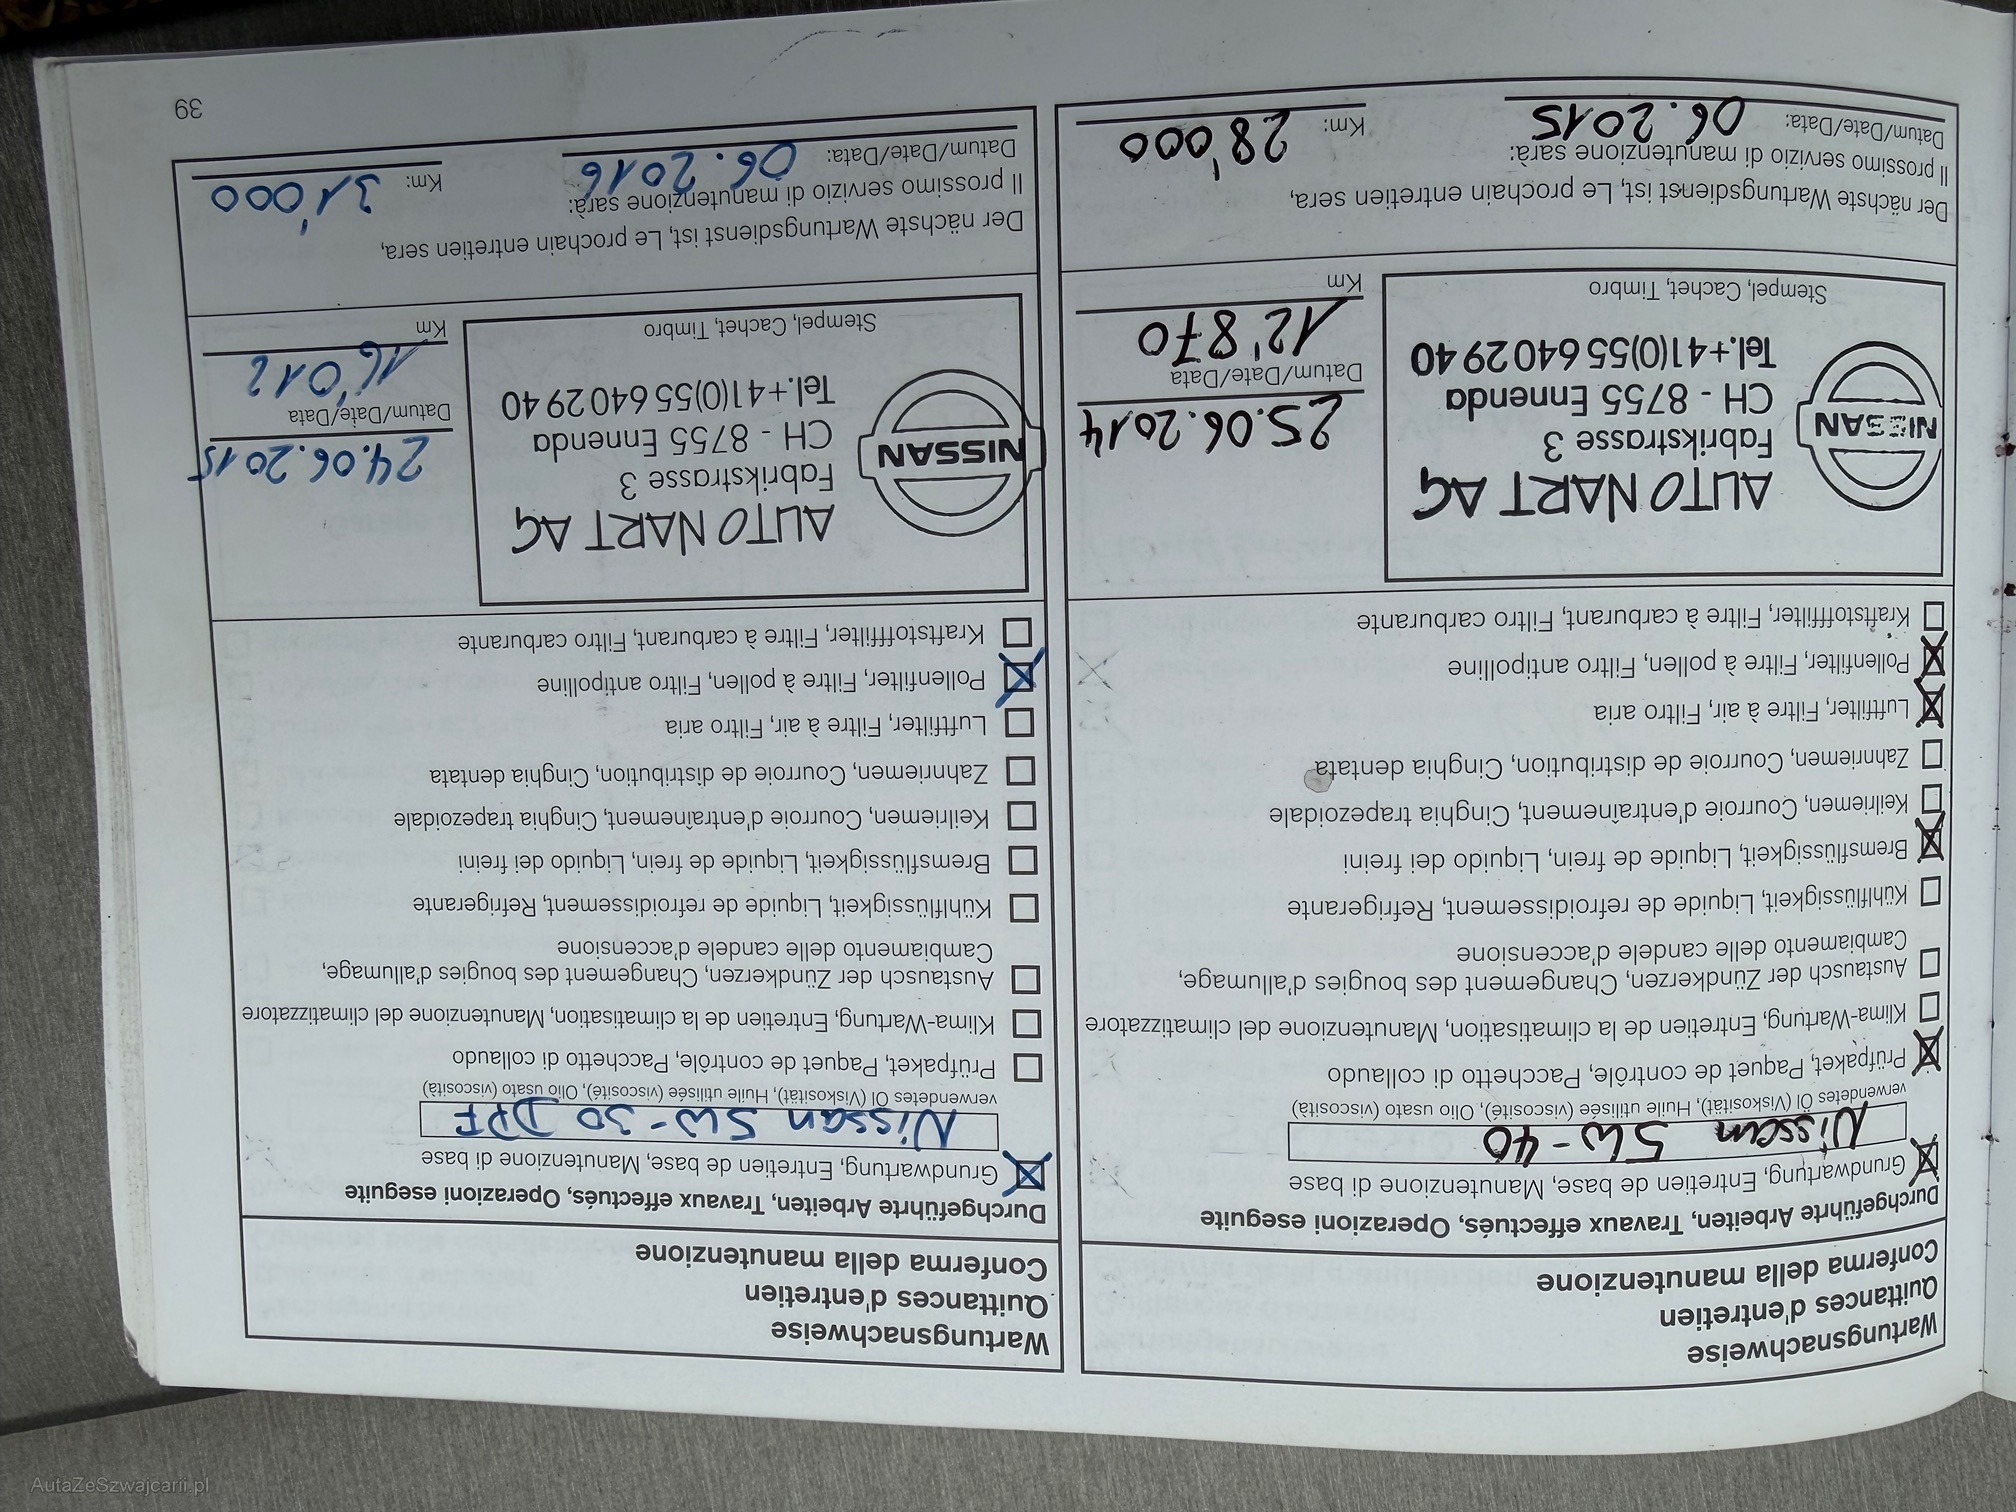 Wartungsnachweise
Quittances d'entretien
Conferma della manutenzione
Durchgeführte Arbeiten, Travaux effectués, Operazioni eseguite
Grundwartung, Entretien de base, Manutenzione di base
Nissan 5W-40
verwendetes Öl (Viskosität), Huile utilisée (viscosité), Olio usato (viscosità)
Prüfpaket, Paquet de contrôle, Pacchetto di collaudo
Klima-Wartung, Entretien de la climatisation, Manutenzione del climatizzatore
Austausch der Zündkerzen, Changement des bougies d'allumage,
Cambiamento delle candele d'accensione
Kühlflüssigkeit, Liquide de refroidissement, Refrigerante
Bremsflüssigkeit, Liquide de frein, Liquido dei freini
Keilriemen, Courroie d'entraînement, Cinghia trapezoidale
Zahnriemen, Courroie de distribution, Cinghia dentata
Luftfilter, Filtre à air, Filtro aria
Pollenfilter, Filtre à pollen, Filtro antipolline
Kraftstofffilter, Filtre à carburant, Filtro carburante
NISSAN
AUTO NART AG
Fabrikstrasse 3
CH - 8755 Ennenda
Tel.+41(0)55 640 29 40
Stempel, Cachet, Timbro
25.06.2014
Datum/Date/Data
12'870
Km
Der nächste Wartungsdienst ist, Le prochain entretien sera,
Il prossimo servizio di manutenzione sarà:
Datum/Date/Data: 06.2015 Km: 28'000
Wartungsnachweise
Quittances d'entretien
Conferma della manutenzione
Durchgeführte Arbeiten, Travaux effectués, Operazioni eseguite
Grundwartung, Entretien de base, Manutenzione di base
Nissan 5W-30 DPF
verwendetes Öl (Viskosität), Huile utilisée (viscosité), Olio usato (viscosità)
Prüfpaket, Paquet de contrôle, Pacchetto di collaudo
Klima-Wartung, Entretien de la climatisation, Manutenzione del climatizzatore
Austausch der Zündkerzen, Changement des bougies d'allumage,
Cambiamento delle candele d'accensione
Kühlflüssigkeit, Liquide de refroidissement, Refrigerante
Bremsflüssigkeit, Liquide de frein, Liquido dei freini
Keilriemen, Courroie d'entraînement, Cinghia trapezoidale
Zahnriemen, Courroie de distribution, Cinghia dentata
Luftfilter, Filtre à air, Filtro aria
Pollenfilter, Filtre à pollen, Filtro antipolline
Kraftstofffilter, Filtre à carburant, Filtro carburante
NISSAN
AUTO NART AG
Fabrikstrasse 3
CH - 8755 Ennenda
Tel.+41(0)55 640 29 40
Stempel, Cachet, Timbro
24.06.2015
Datum/Date/Data
16'012
Km
Der nächste Wartungsdienst ist, Le prochain entretien sera,
Il prossimo servizio di manutenzione sarà:
Datum/Date/Data: 06.2016 Km: 31'000
39
AutaZeSzwajcarii.pl